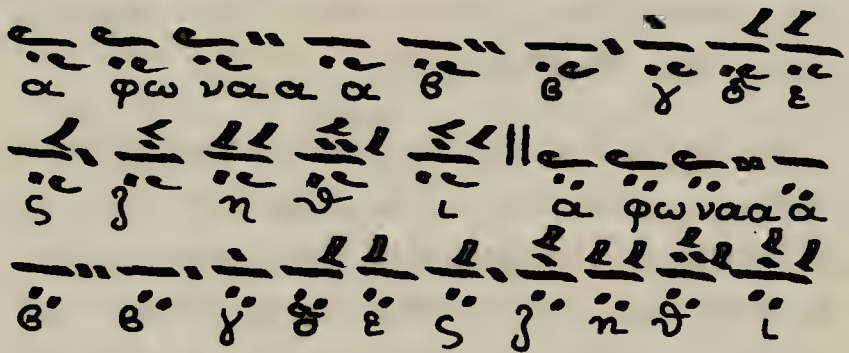 α φω να α α β β γ δ ε
ς ζ η θ ι α φω να α α
β β γ δ ε ς ζ η θ ι